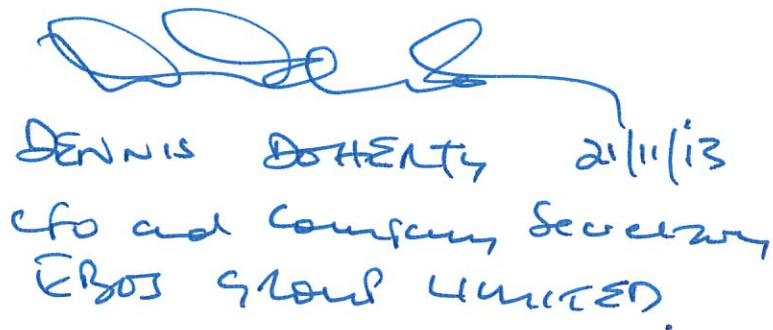 DENNIS DOHERTY 21/11/13
CFO and Company Secretary
EBOS GROUP LIMITED.